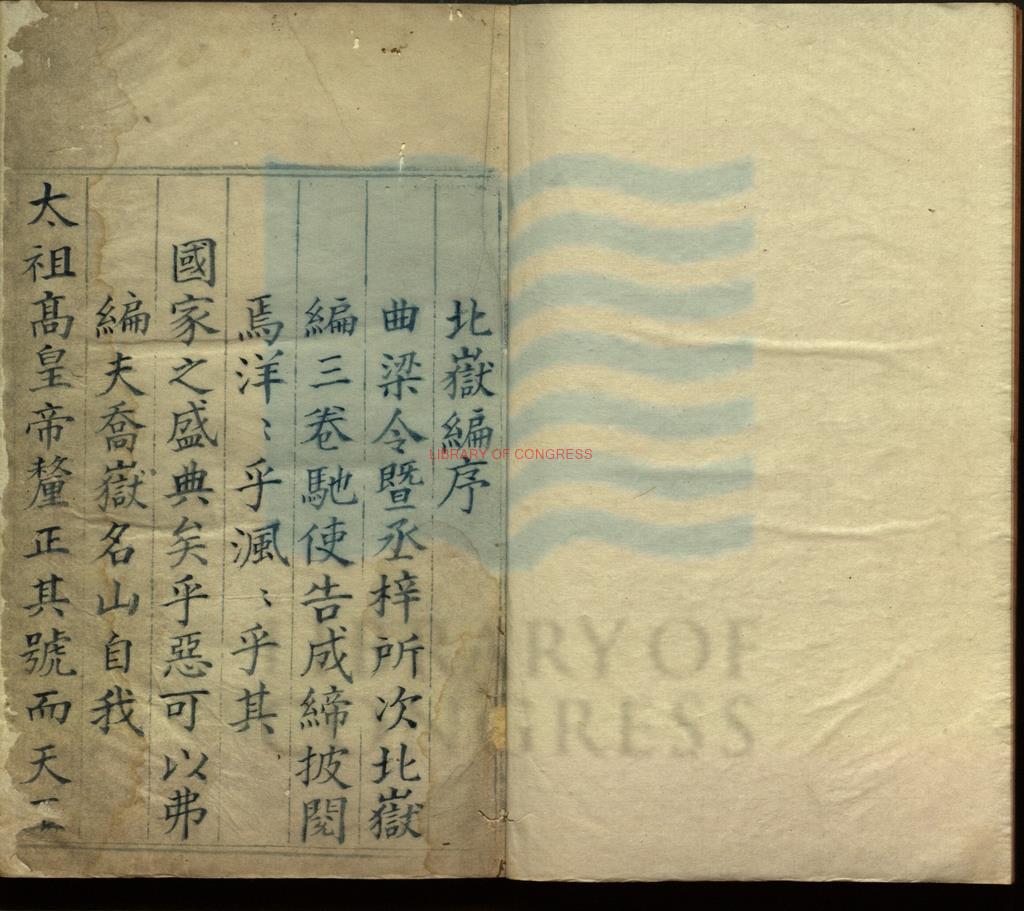 北嶽編序
曲梁令暨丞梓所次北嶽
編三卷馳使告成締披閱
焉洋〻乎渢〻乎其
國家之盛典矣乎惡可以弗
編夫喬嶽名山自我
太祖高皇帝釐正其號而天下
LIBRARY OF CONGRESS
LIBRARY OF
CONGRESS